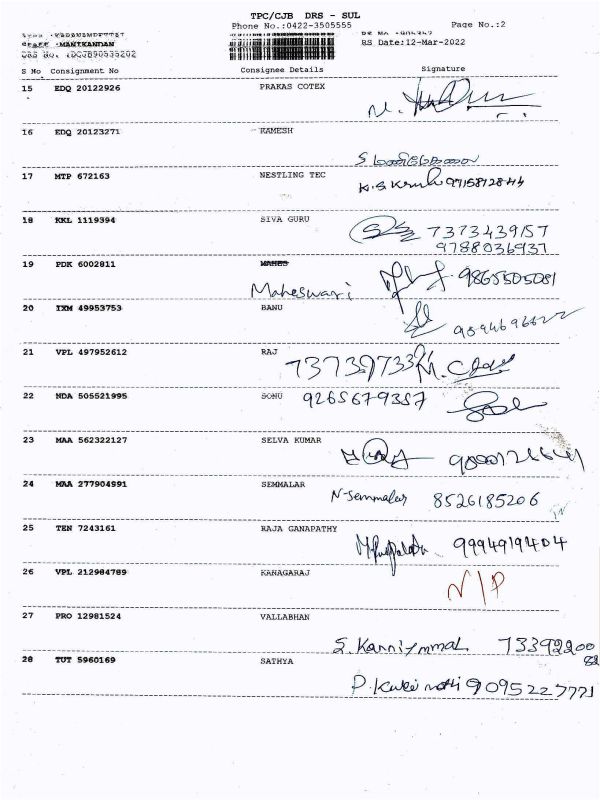 TPC/CJB DRS - SUL
Phone No.:0422-3505555 Page No.:2
MANIKANDAN
RS Date:12-Mar-2022
S No Consignment No Consignee Details Signature
15 EDQ 20122926 PRAKAS COTEX
16 EDQ 20123271 RAMESH
17 MTP 672163 NESTLING TEC
9715812844
18 KKL 1119394 SIVA GURU
7373439157
9788036937
19 PDK 6002811 MAHES
Maheswari 9865505081
20 TXM 49953753 BANU
21 VPL 497952612 RAJ
22 NDA 505521995 SONU 9265679357
23 MAA 562322127 SELVA KUMAR
24 MAA 277904991 SEMMALAR
N-Semmalar 8526185206
25 TEN 7243161 RAJA GANAPATHY
9994919404
26 VPL 212984789 KANAGARAJ
N/P
27 PRO 12981524 VALLABHAN
S. Kanniymmal 73392200
82
28 TUT 5960169 SATHYA
9095227771